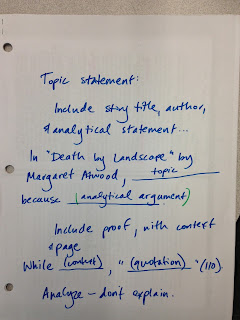 Topic statement:
Include story title, author,
& analytical statement...
In "Death by Landscape" by
Margaret Atwood, topic
because (analytical argument)
Include proof, with context
& page
While (context), "(quotation)" (110).
Analyze – don't explain.